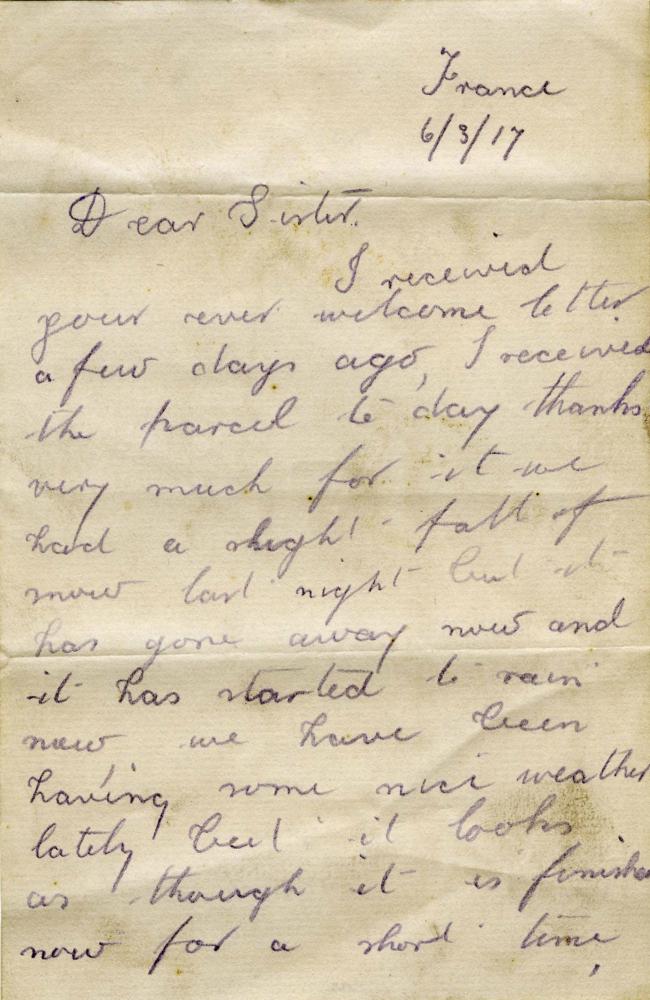 France
6/3/17
Dear Sister.
I received
your ever welcome letter
a few days ago, I received
the parcel to day thanks
very much for it we
had a slight fall of
snow last night but it
has gone away now and
it has started to rain
now we have been
having some nice weather
lately but it looks
as though it is finished
now for a short time,